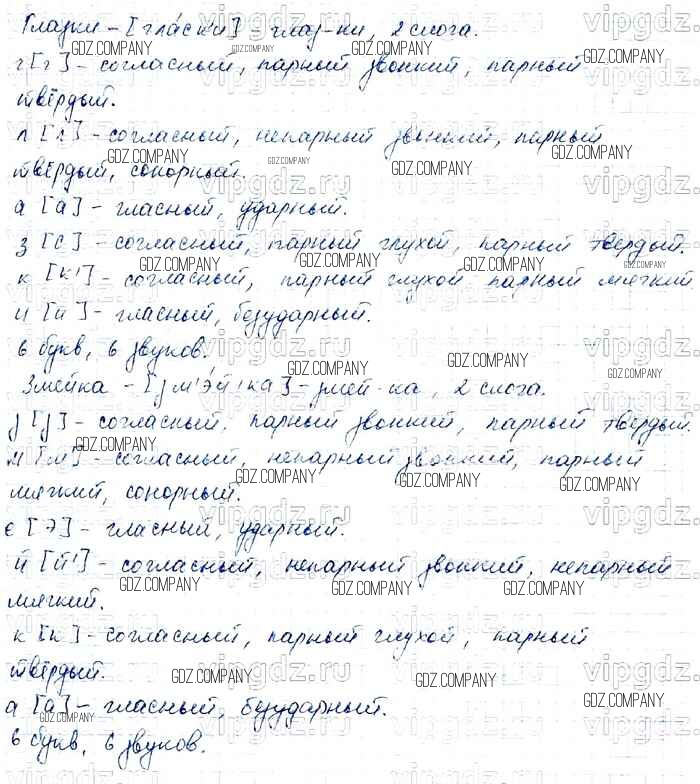 Глазки – [гла́ск'и] – глаз-ки, 2 слога.
г [г] – согласный, парный звонкий, парный
твёрдый.
л [л] – согласный, непарный звонкий, парный
твёрдый, сонорный.
а [а] – гласный, ударный.
з [с] – согласный, парный глухой, парный твёрдый.
к [к'] – согласный, парный глухой парный мягкий
и [и] – гласный, безударный.
6 букв, 6 звуков.
Змейка – [зм'э́й'ка] – змей-ка, 2 слога.
з [з] – согласный, парный звонкий, парный твёрдый.
м [м'] – согласный, непарный звонкий, парный
мягкий, сонорный.
е [э] – гласный, ударный.
й [й'] – согласный, непарный звонкий, непарный
мягкий.
к [к] – согласный, парный глухой, парный
твёрдый.
а [а] – гласный, безударный.
6 букв, 6 звуков.
GDZ.COMPANY
vipgdz.ru